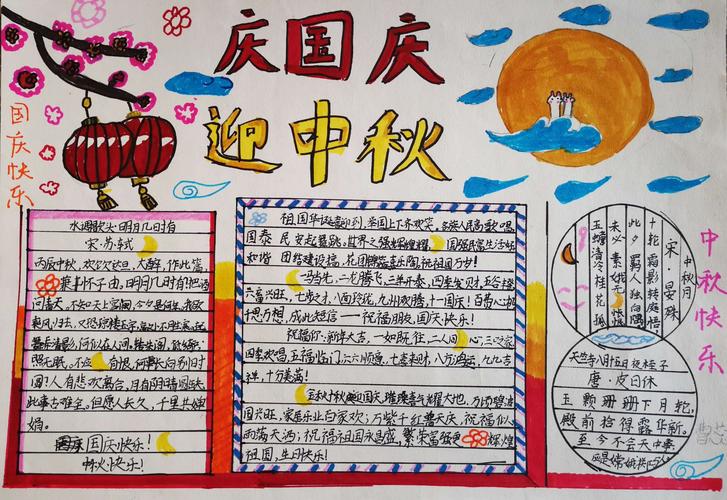 庆国庆
迎中秋
国庆快乐
水调歌头·明月几时有
宋·苏轼
丙辰中秋,欢饮达旦,大醉,作此篇,
兼怀子由,明月几时有把酒
问青天。不知天上宫阙,今夕是何年。我欲
乘风归去,又恐琼楼玉宇,高处不胜寒。起
舞弄清影,何似在人间。转朱阁,低绮户,
照无眠。不应有恨,何事长向别时
圆?人有悲欢离合,月有阴晴圆缺,
此事古难全。但愿人长久,千里共婵
娟。
国庆快乐!
中秋快乐!
祖国华诞喜迎到,举国上下齐欢笑,各族人民高歌唱,
国泰民安起舞跳。世界之强辉煌耀,国强民富生活好,
和谐团结建设搞,花团锦簇喜乐陶,祝祖国万岁!
一马当先,二龙腾飞,三羊开泰,四季发财,五谷丰
六畜兴旺,七步才,八面玲珑,九州欢腾,十一国庆!百静心加
千思万想,成此短信——祝福朋友,国庆快乐!
祝福你:新年大吉,一如既往,二人同心,三
四季欢唱,五福临门,六六顺意,七
祥,十分美满!
国兴旺,家居乐业百家欢;万紫千红普天庆,祝福似
雨满天洒;祝福祖国永昌盛,繁荣富强更辉煌
祖国,生日快乐!
中秋月
宋·晏殊
十轮霜影转庭梧
此夕羁人独向隅
未必素娥无怅恨
玉蟾清冷桂花孤
中秋快乐
天竺寺八月十五日夜桂子
唐·皮日休
玉颗珊珊下月轮,
殿前拾得露华新。
至今不会天中事,
应是嫦娥掷与人